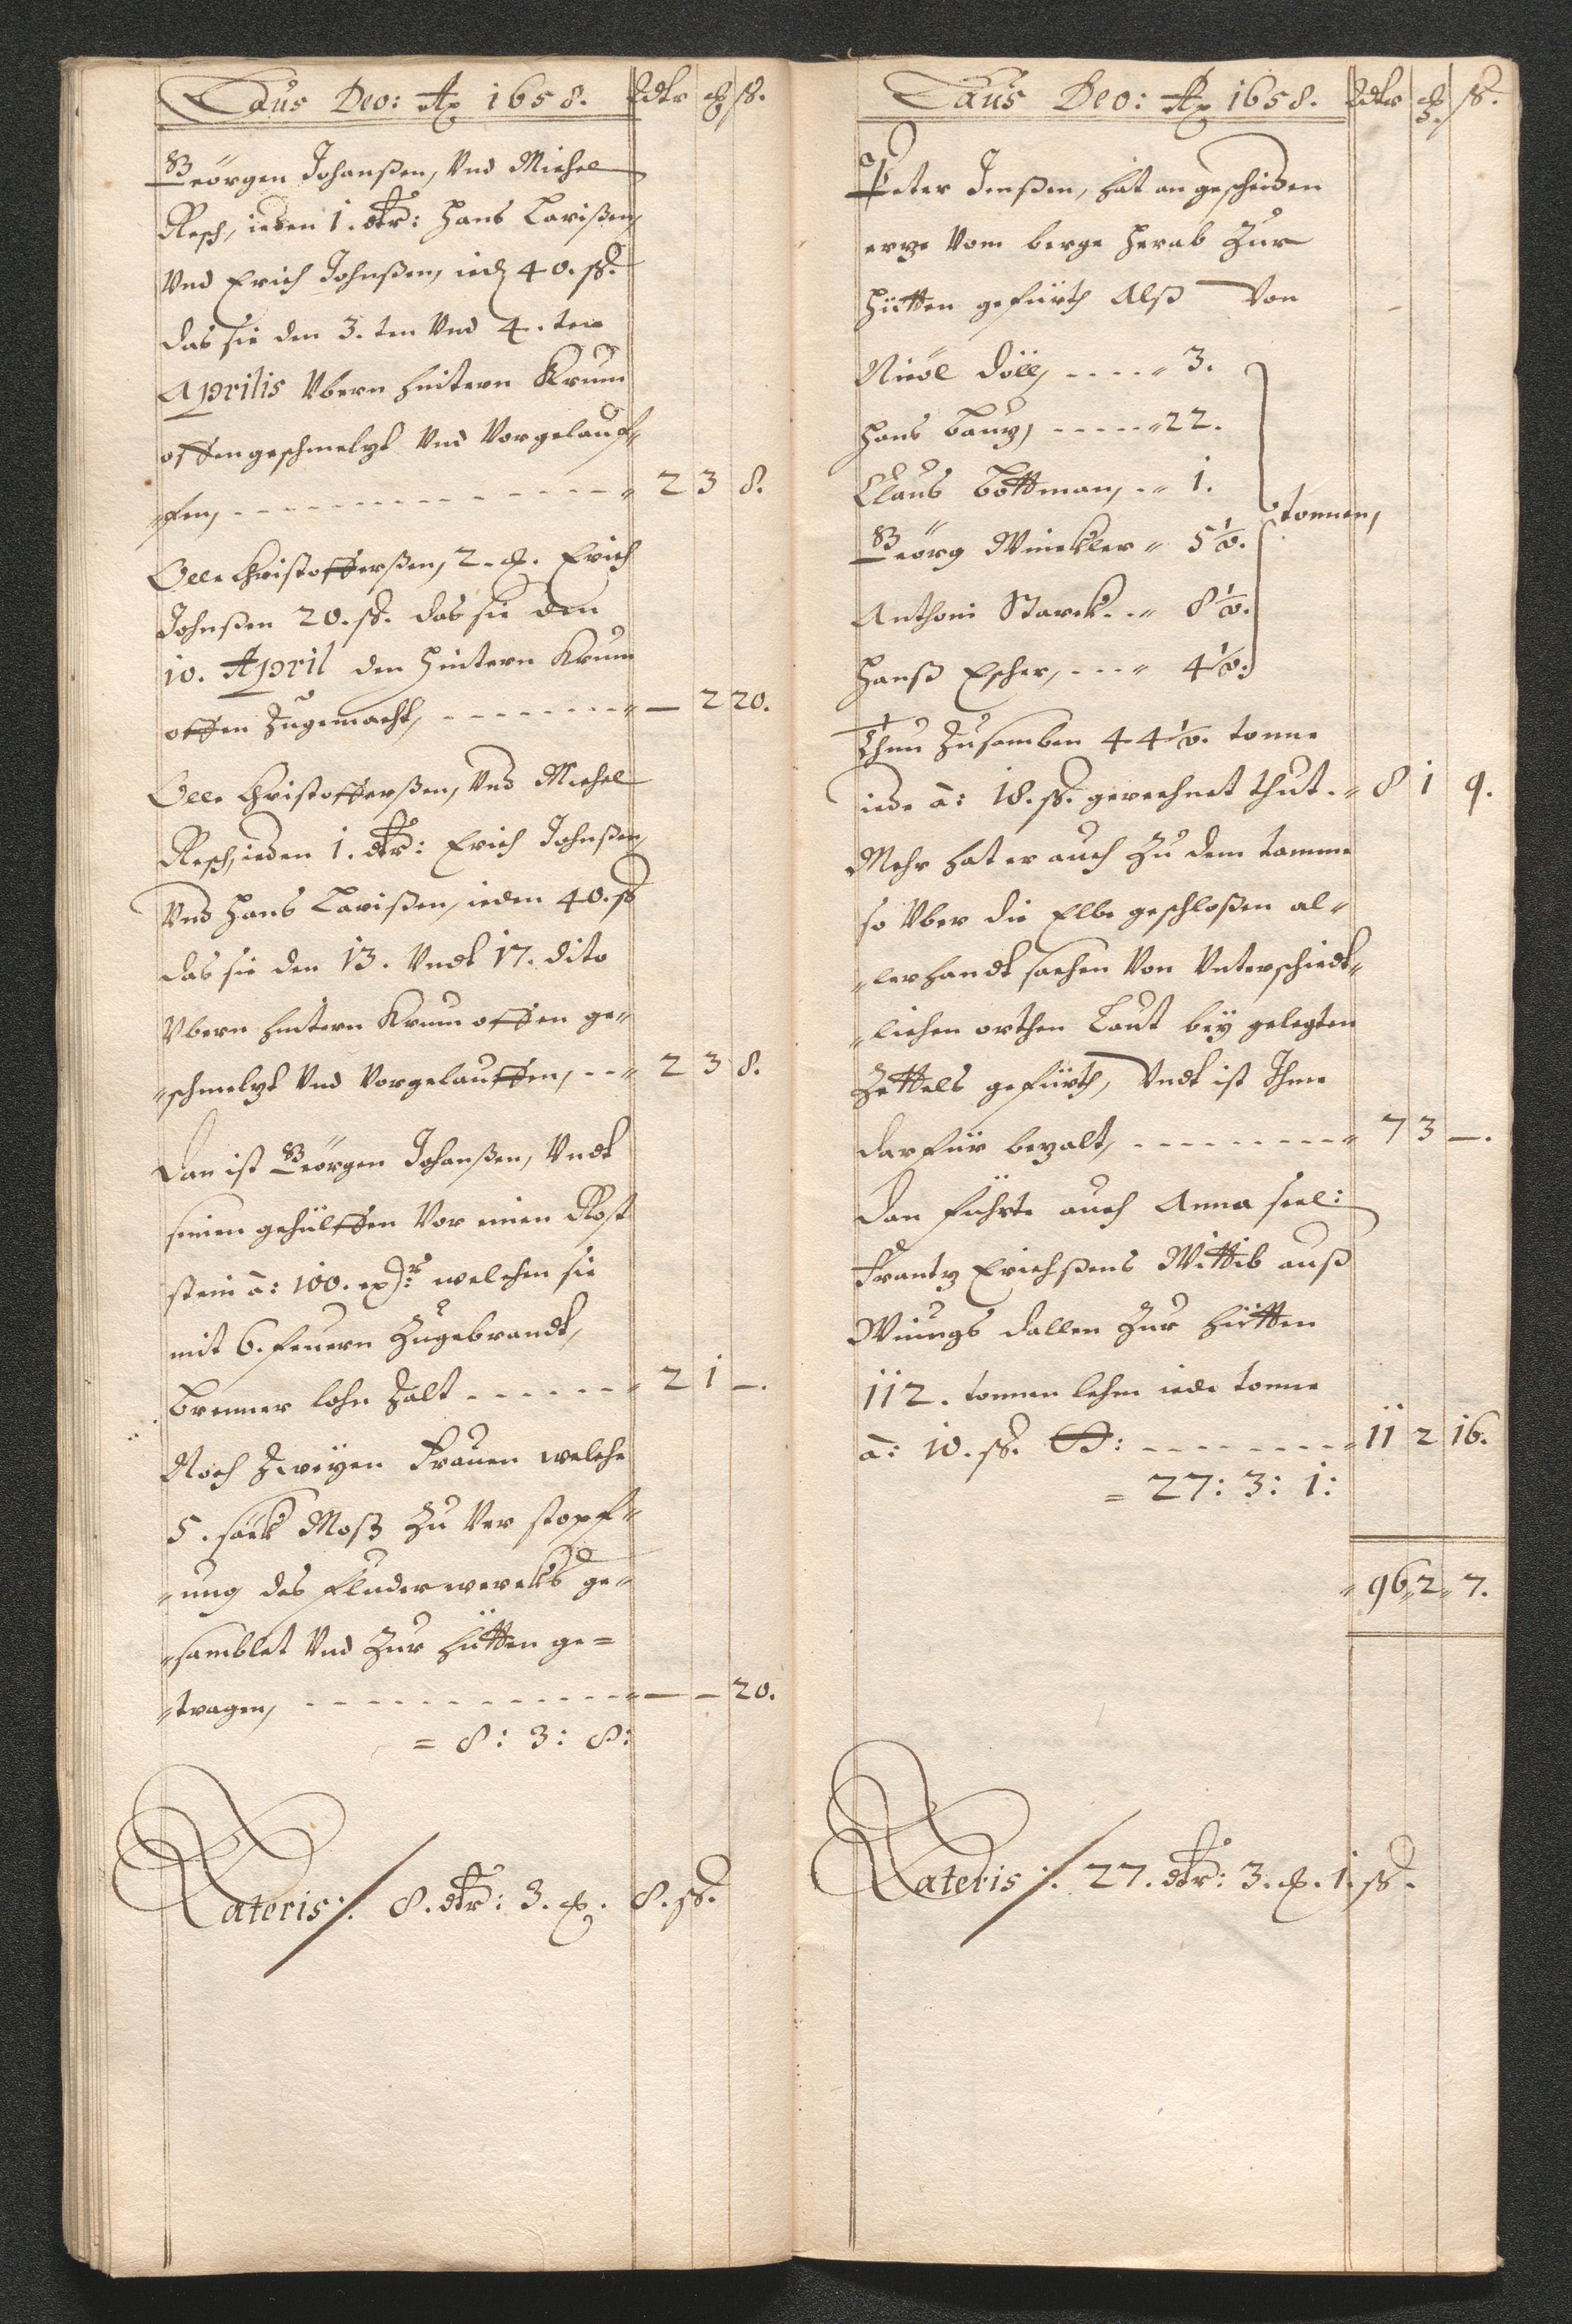 Laus Deo: Ao 1658. Rdtr ȹ ß.
Geörgen Johanßen, Vnd Michel
Resch, ieden 1. dtr: Hans Larißen,
Vnd Erich Johnßen, ied 40. ß.
das sie den 3. ten Vnd 4. ten
Aprilis Vbern hintern Krum
offen geschmeltzt Vnd Vorgelauf„
„fen, „ 2 3 8.
Olle Christofferßen, 2. ȹ. Erich
Johnßen 20. ß. das sie den
10. April den hintern Krum
offen Zugemacht, „ — 2 20.
Olle Christofferßen, Vnd Michel
Resch, ieden 1. dtr: Erich Johnßen,
Vnd Hans Larißen, ieden 40. ß
das sie den 13. Vndt 17. dito
Vbern hintern Krum offen ge„
„schmeltzt Vnd Vorgelauffen, „ 2 3 8.
Dan ist Geörgen Johanßen, Vndt
seinen gehülffen Vor einen Rost
stein â: 100. welchen sie
mit 6. feuern Zugebrandt,
Brenner lohn Zalt „ 2 1 —.
Noch Zweyen Frauen welche
5. säck Moß Zu Ver stopf„
„ung des fluderwercks ge„
„samblet Vnd Zur hütten ge=
„tragen, „ — — 20.
= 8: 3: 8:
Lateris:/. 8. dtr: 3. ȹ. 8. ß.
Laus Deo: Ao 1658. Rdtr ȹ. ß.
Peter Jenßen, hat an gescheiden
ertze Vom berge herab Zur
hütten geführth Alß Von
Nicöl Döll, „ 3.
Hans Bautz, „ 22.
Claus Bottman, „ 1.
Geörg Winckler „ 5 ½. tonnen,
Anthoni Starck „ 8 ½.
Hanß Escher, „ 4 ½.
Thun Zusamben 44 ½. tonne
iede â: 18. ß. gerechnet thut. „ 8 1 9.
Mehr hat er auch Zu dem tamme
so Vber die Elbe geschloßen al„
„lerhandt sachen Von Vnterschiedt„
„lichen orthen Laut bey gelegten
Zettels geführth, Vndt ist Ihme
darfür bezalt, „ 7 3 —.
Dan führte auch Anna seel:
Frantz Erichßens Wittib auß
Winngs dallen Zur hütten
112. tonnen lehm iede tonne
â: 10. ß. „ 11 2 16.
= 27: 3: 1:
„ 96„ 2„ 7.
Lateris:/. 27. dtr: 3. ȹ. 1. ß.